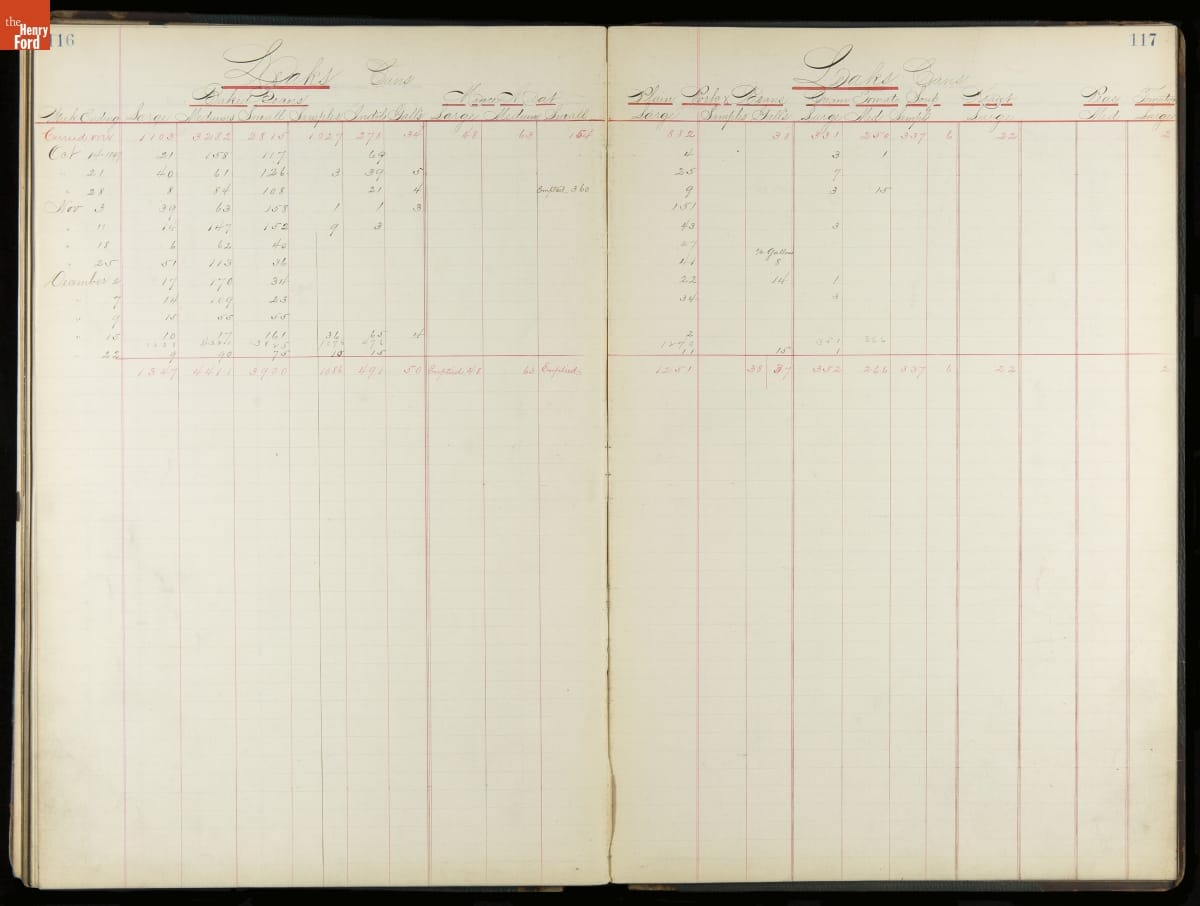 the
Henry
Ford
116
Leaks Cans
Baked Beans Mince Meat
Week Ending Large Medium Small Samples Gall Large Medium Small
Carried over 1103 3282 2815 1027 278 34 48 63 154
Oct 14 21 158 117 69
" 21 40 61 126 3 39 5
" 28 8 84 108 21 4 Emptied 360
Nov 3 39 63 158 1 1 3
" 11 147 152 9 3
" 18 6 62
" 25 51 113 36
December 2 17 170 34
" 7 14 109 23
" 9 15 55 55
" 15 10 17 161 36 65 4
" 22 9 90 75 15 15
1347 4411 3920 1086 491 50 Emptied 48 63 Emptied
117
Leaks Cans
Plain Pork & Beans Tomato Soup
Large Samples Galls Large Med Sample Large Med Large
882 38 331 250 337 6 22 2
4 3 1
25 7
9 3 15
151
43 3
27
½ Gallon
41 8
22 14 1
34 3
2
1272 351 266
11 15 1
1251 38 37 352 266 337 6 22 2